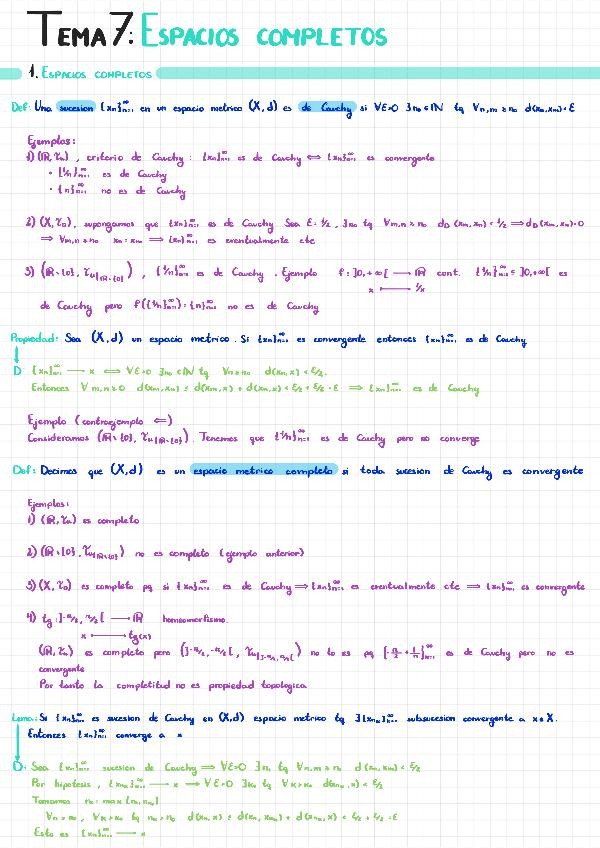 TEMA 7: ESPACIOS COMPLETOS
1. ESPACIOS COMPLETOS
Def: Una sucesion {xₙ}ₙ₌₁^∞ en un espacio metrico (X,d) es de Cauchy si ∀ε>0 ∃n₀∈ℕ tq ∀n,m≥n₀ d(xₙ,xₘ)<ε
Ejemplos:
1) (ℝ,τᵤ), criterio de Cauchy: {xₙ}ₙ₌₁^∞ es de Cauchy ⟺ {xₙ}ₙ₌₁^∞ es convergente
• {1/n}ₙ₌₁^∞ es de Cauchy
• {n}ₙ₌₁^∞ no es de Cauchy
2) (X,τ_D), supongamos que {xₙ}ₙ₌₁^∞ es de Cauchy Sea ε=1/2, ∃n₀ tq ∀m,n≥n₀ d_D(xₘ,xₙ)<1/2 ⟹ d_D(xₘ,xₙ)=0
⟹ ∀m,n≥n₀ xₙ=xₘ ⟹ {xₙ}ₙ₌₁^∞ es eventualmente cte
3) (ℝ\{0}, τᵤ|ℝ\{0}), {1/n}ₙ₌₁^∞ es de Cauchy. Ejemplo f:]0,+∞[ ⟶ ℝ cont. {1/n}ₙ₌₁^∞ ⊆ ]0,+∞[ es
x ⟼ 1/x
de Cauchy pero f({1/n})={n}ₙ₌₁^∞ no es de Cauchy
Propiedad: Sea (X,d) un espacio metrico. Si {xₙ}ₙ₌₁^∞ es convergente entonces {xₙ}ₙ₌₁^∞ es de Cauchy
D {xₙ}ₙ₌₁^∞ ⟶ x ⟺ ∀ε>0 ∃n₀∈ℕ tq ∀n≥n₀ d(xₙ,x)<ε/2.
Entonces ∀m,n≥0 d(xₘ,xₙ) ≤ d(xₘ,x)+d(xₙ,x)<ε/2+ε/2=ε ⟹ {xₙ}ₙ₌₁^∞ es de Cauchy
Ejemplo (contraejemplo ⟸)
Consideramos (ℝ\{0}, τᵤ|ℝ\{0}). Tenemos que {1/n}ₙ₌₁^∞ es de Cauchy pero no converge
Def: Decimos que (X,d) es un espacio metrico completo si toda sucesion de Cauchy es convergente
Ejemplos:
1) (ℝ,τᵤ) es completo
2) (ℝ\{0}, τᵤ|ℝ\{0}) no es completo (ejemplo anterior)
3) (X,τ_D) es completo pq si {xₙ}ₙ₌₁^∞ es de Cauchy ⟹ {xₙ}ₙ₌₁^∞ es eventualmente cte ⟹ {xₙ}ₙ₌₁^∞ es convergente
4) tg:]-π/2,π/2[ ⟶ ℝ homeomorfismo.
x ⟼ tg(x)
(ℝ,τᵤ) es completo pero (]-π/2,-π/2[, τᵤ|]-π/2,π/2[) no lo es pq {-π/2+1/n}ₙ₌₁^∞ es de Cauchy pero no es
convergente
Por tanto la completitud no es propiedad topologica
Lema: Si {xₙ}ₙ₌₁^∞ es sucesion de Cauchy en (X,d) espacio metrico tq ∃{xₙₖ}ₖ₌₁^∞ subsucesion convergente a x∈X.
Entonces {xₙ}ₙ₌₁^∞ converge a x
D: Sea {xₙ}ₙ₌₁^∞ sucesion de Cauchy ⟹ ∀ε>0 ∃n₁ tq ∀n,m≥n₁ d(xₙ,xₘ)<ε/2
Por hipotesis, {xₙₖ}ₖ₌₁^∞ ⟶ x ⟹ ∀ε>0 ∃k₀ tq ∀k>k₀ d(xₙₖ,x)<ε/2
Tomamos n₀=max{n₁,nₖ₀}
∀n>n₀, ∀k>k₀ tq nₖ>n₀ d(xₙ,x) ≤ d(xₙ,xₙₖ)+d(xₙₖ,x)<ε/2+ε/2=ε
Esto es {xₙ}ₙ₌₁^∞ ⟶ x